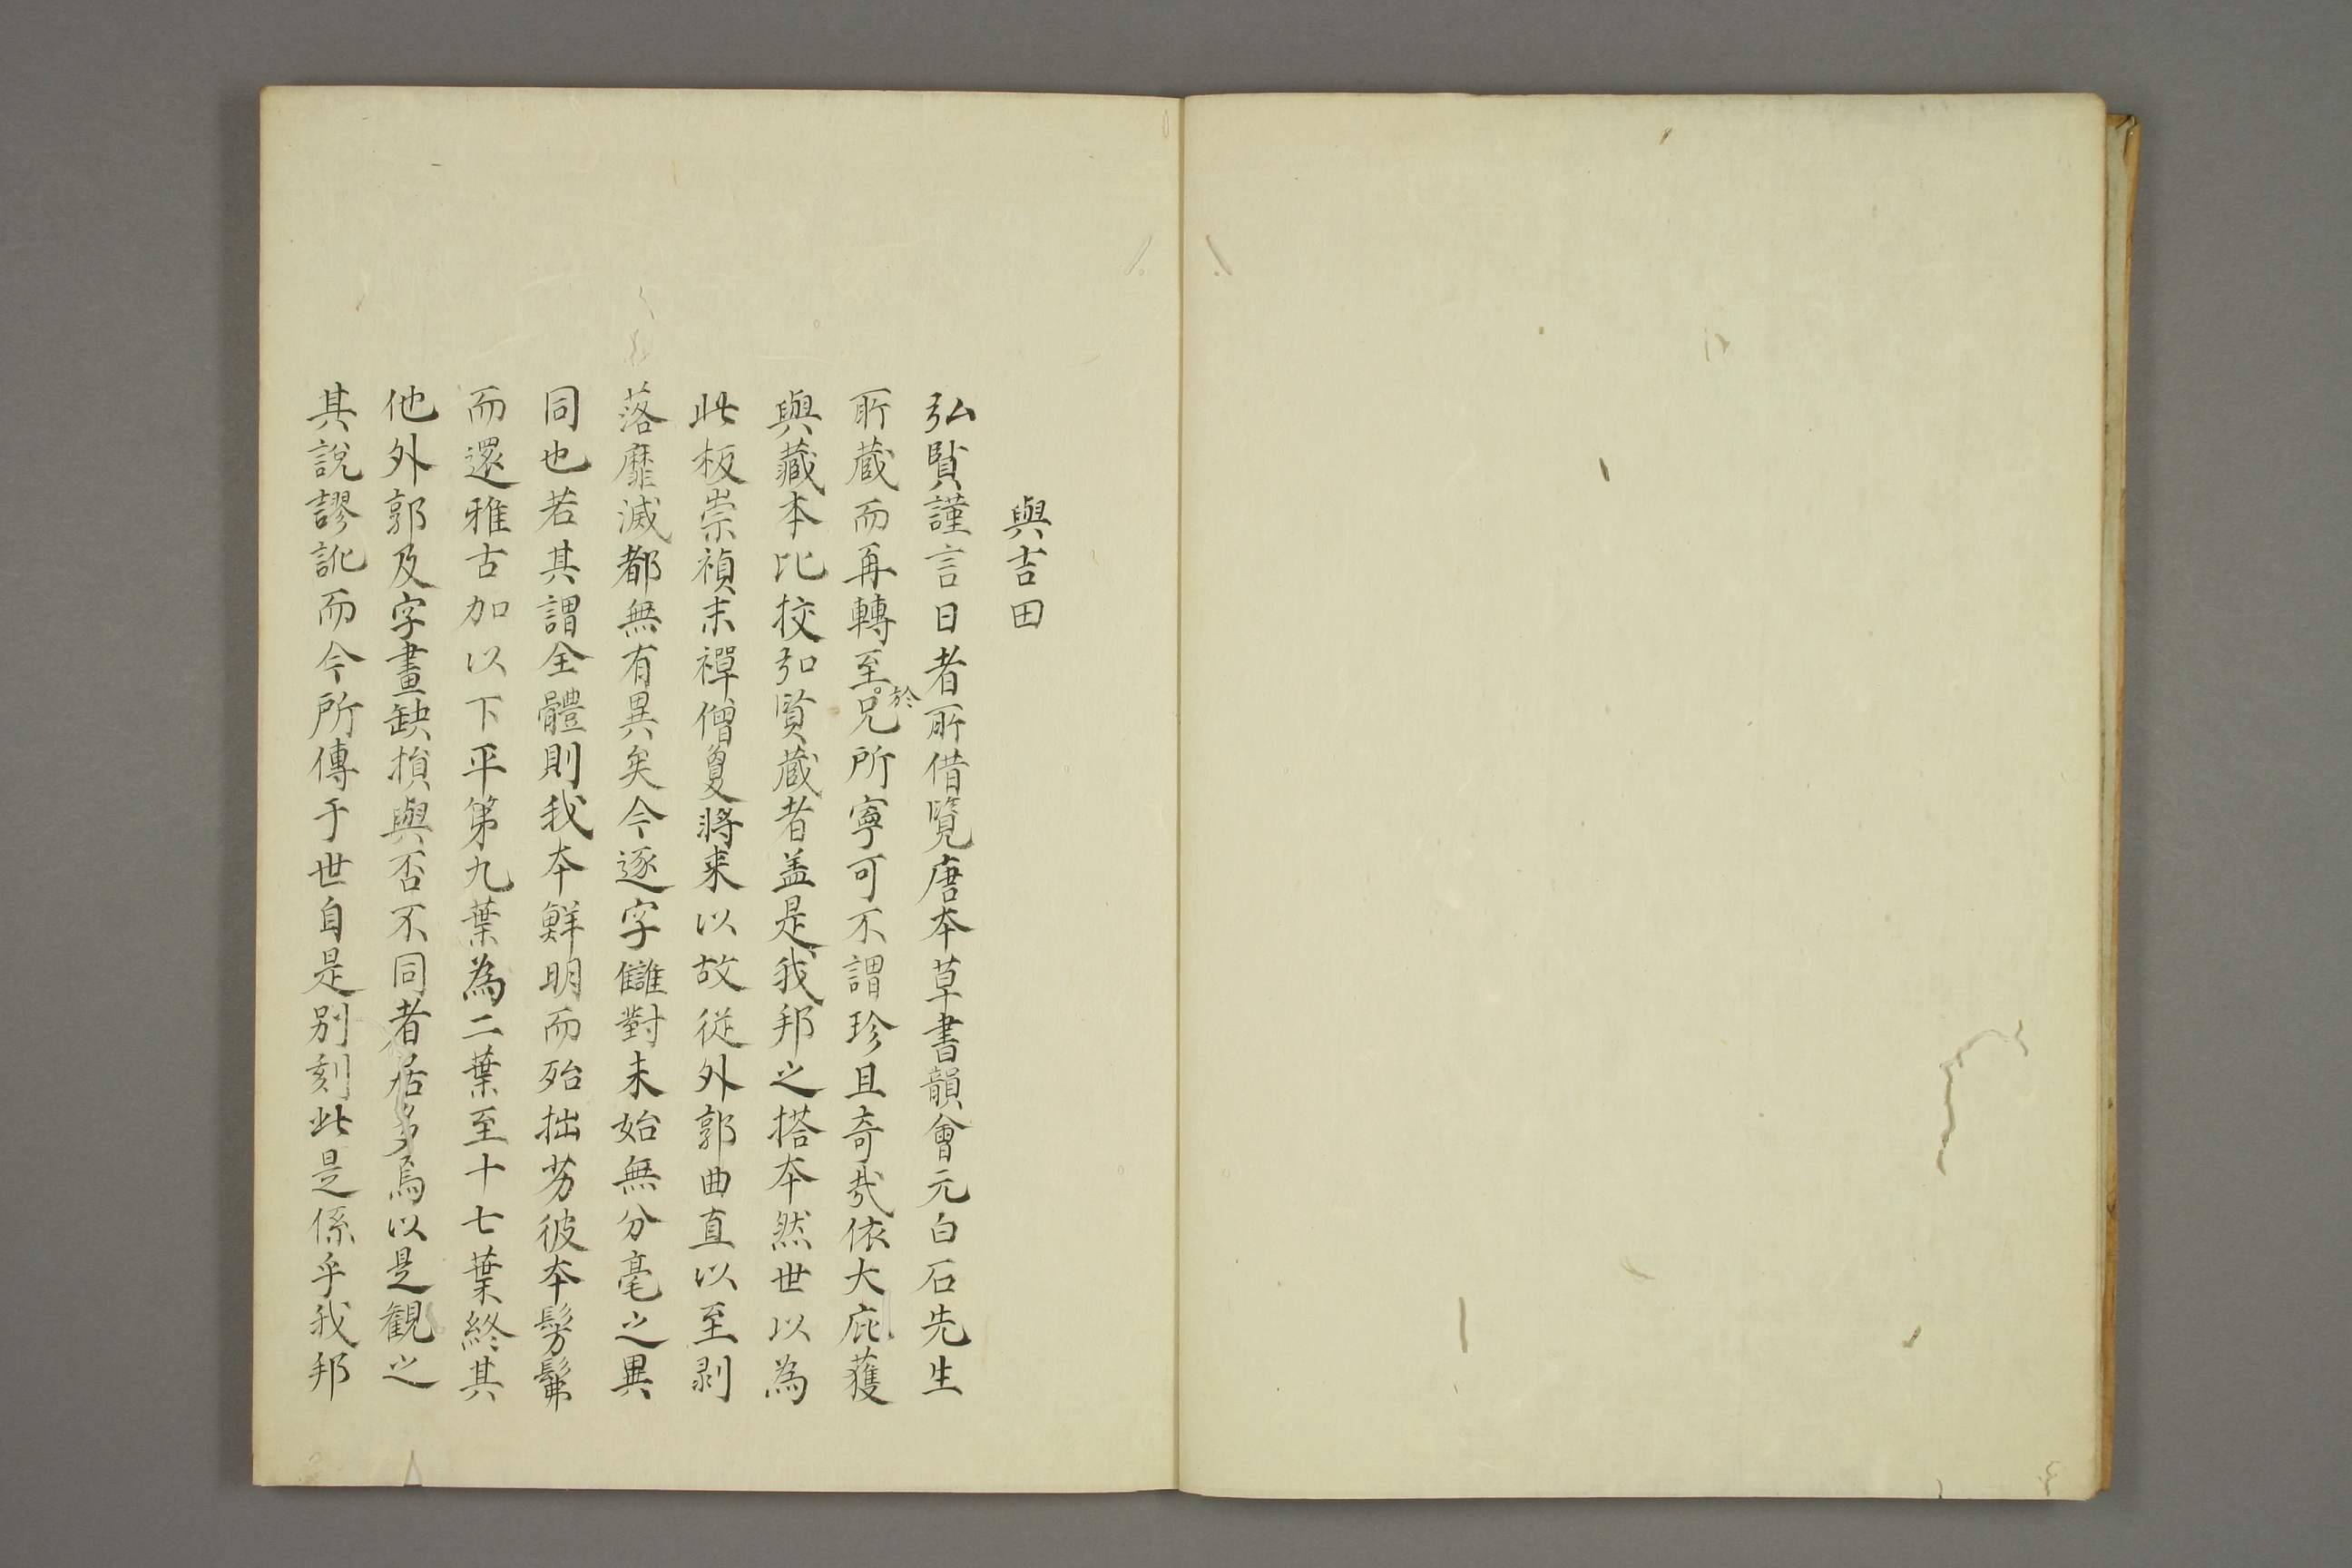 與吉田
弘賢謹言日者所借覧唐本草書韻會元白石先生
所蔵而再轉至於兄所寧可不謂珍且奇哉依大庇獲
與藏本比挍弘賢蔵者盖是我邦之搭本然世以為
此板崇禎末禪僧敻將来以故従外郭曲直以至剥
落靡滅都無有異矣今逐字讎對未始無分毫之異
同也若其謂全體則我本鮮明而殆拙劣彼本髣髴
而還雅古加以下平第九葉為二葉至十七葉終其
他外郭及字畫缺損與否不同者居多焉以是観之
其說謬訛而今所傳于世自是別刻此是係乎我邦